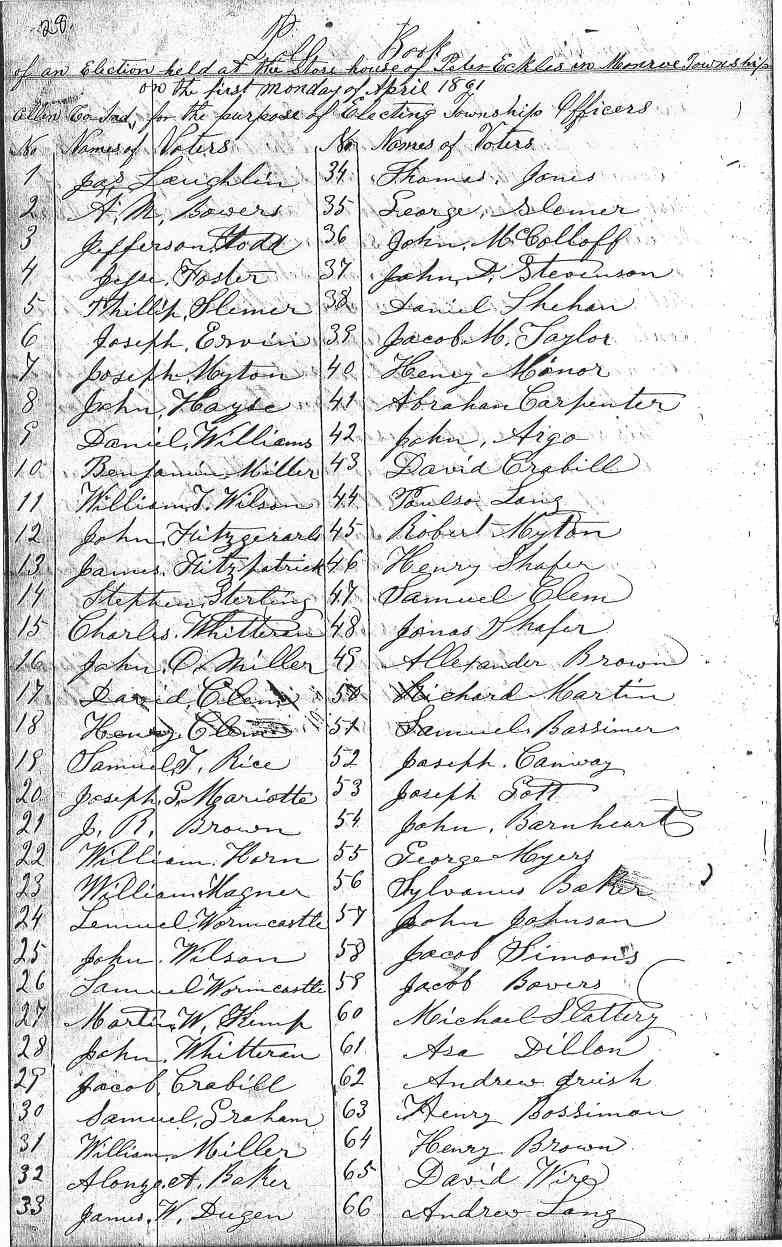 28
Poll Book
of an Election held at the Store house of Peter Eckles in Monroe Township
on the first Monday of April 1861
Allen Co Ind, for the purpose of Electing Township Officers
No Names of Voters No Names of Voters
1 Jas Laughlin 34 Thomas. Jones
2 A. M. Bowers 35 George. Slemer
3 Jefferson Todd 36 John. McColloff
4 Jesse. Foster 37 John. D. Stevenson
5 Phillip. Slemer 38 Daniel Shehan
6 Joseph. Ervin 39 Jacob M. Taylor
7 Joseph. Myton 40 Henry Monor
8 John. Hayse 41 Abraham Carpenter
9 Daniel. Williams 42 John. Argo
10 Benjamin. Miller 43 David Crabill
11 William T. Wilson 44 Poulson Lang
12 John. Fitzgerarls 45 Robert Myton
13 James. Fitzpatrick 46 Henry Shafer
14 Stephen. Sterling 47 Samuel Clem
15 Charles. Whitteran 48 Jonas Shafer
16 John. O. Miller 49 Allexander Brown
17 David. Clem 50 Richard Martin
18 Henry Clem 51 Samuel. Bassimer
19 Samuel T. Rice 52 Joseph. Canway
20 Joseph. S. Mariotte 53 Joseph Gott
21 J. R. Brown 54 John. Barnheart
22 William. Horn 55 George Myers
23 William Wagner 56 Sylvanus Baker
24 Lemuel Wormcastle 57 John Johnson
25 John. Wilson 58 Jacob Simons
26 Samuel Wormcastle 59 Jacob Bowers
27 Martin. W. Kemp 60 Michael Slattery
28 John. Whitteran 61 Asa Dillon
29 Jacob. Crabill 62 Andrew
30 Samuel. Graham 63 Henry Bossiman
31 William. Miller 64 Henry Brown
32 Alonzo. A. Baker 65 David Wire
33 James. W. Dugen 66 Andrew Lang